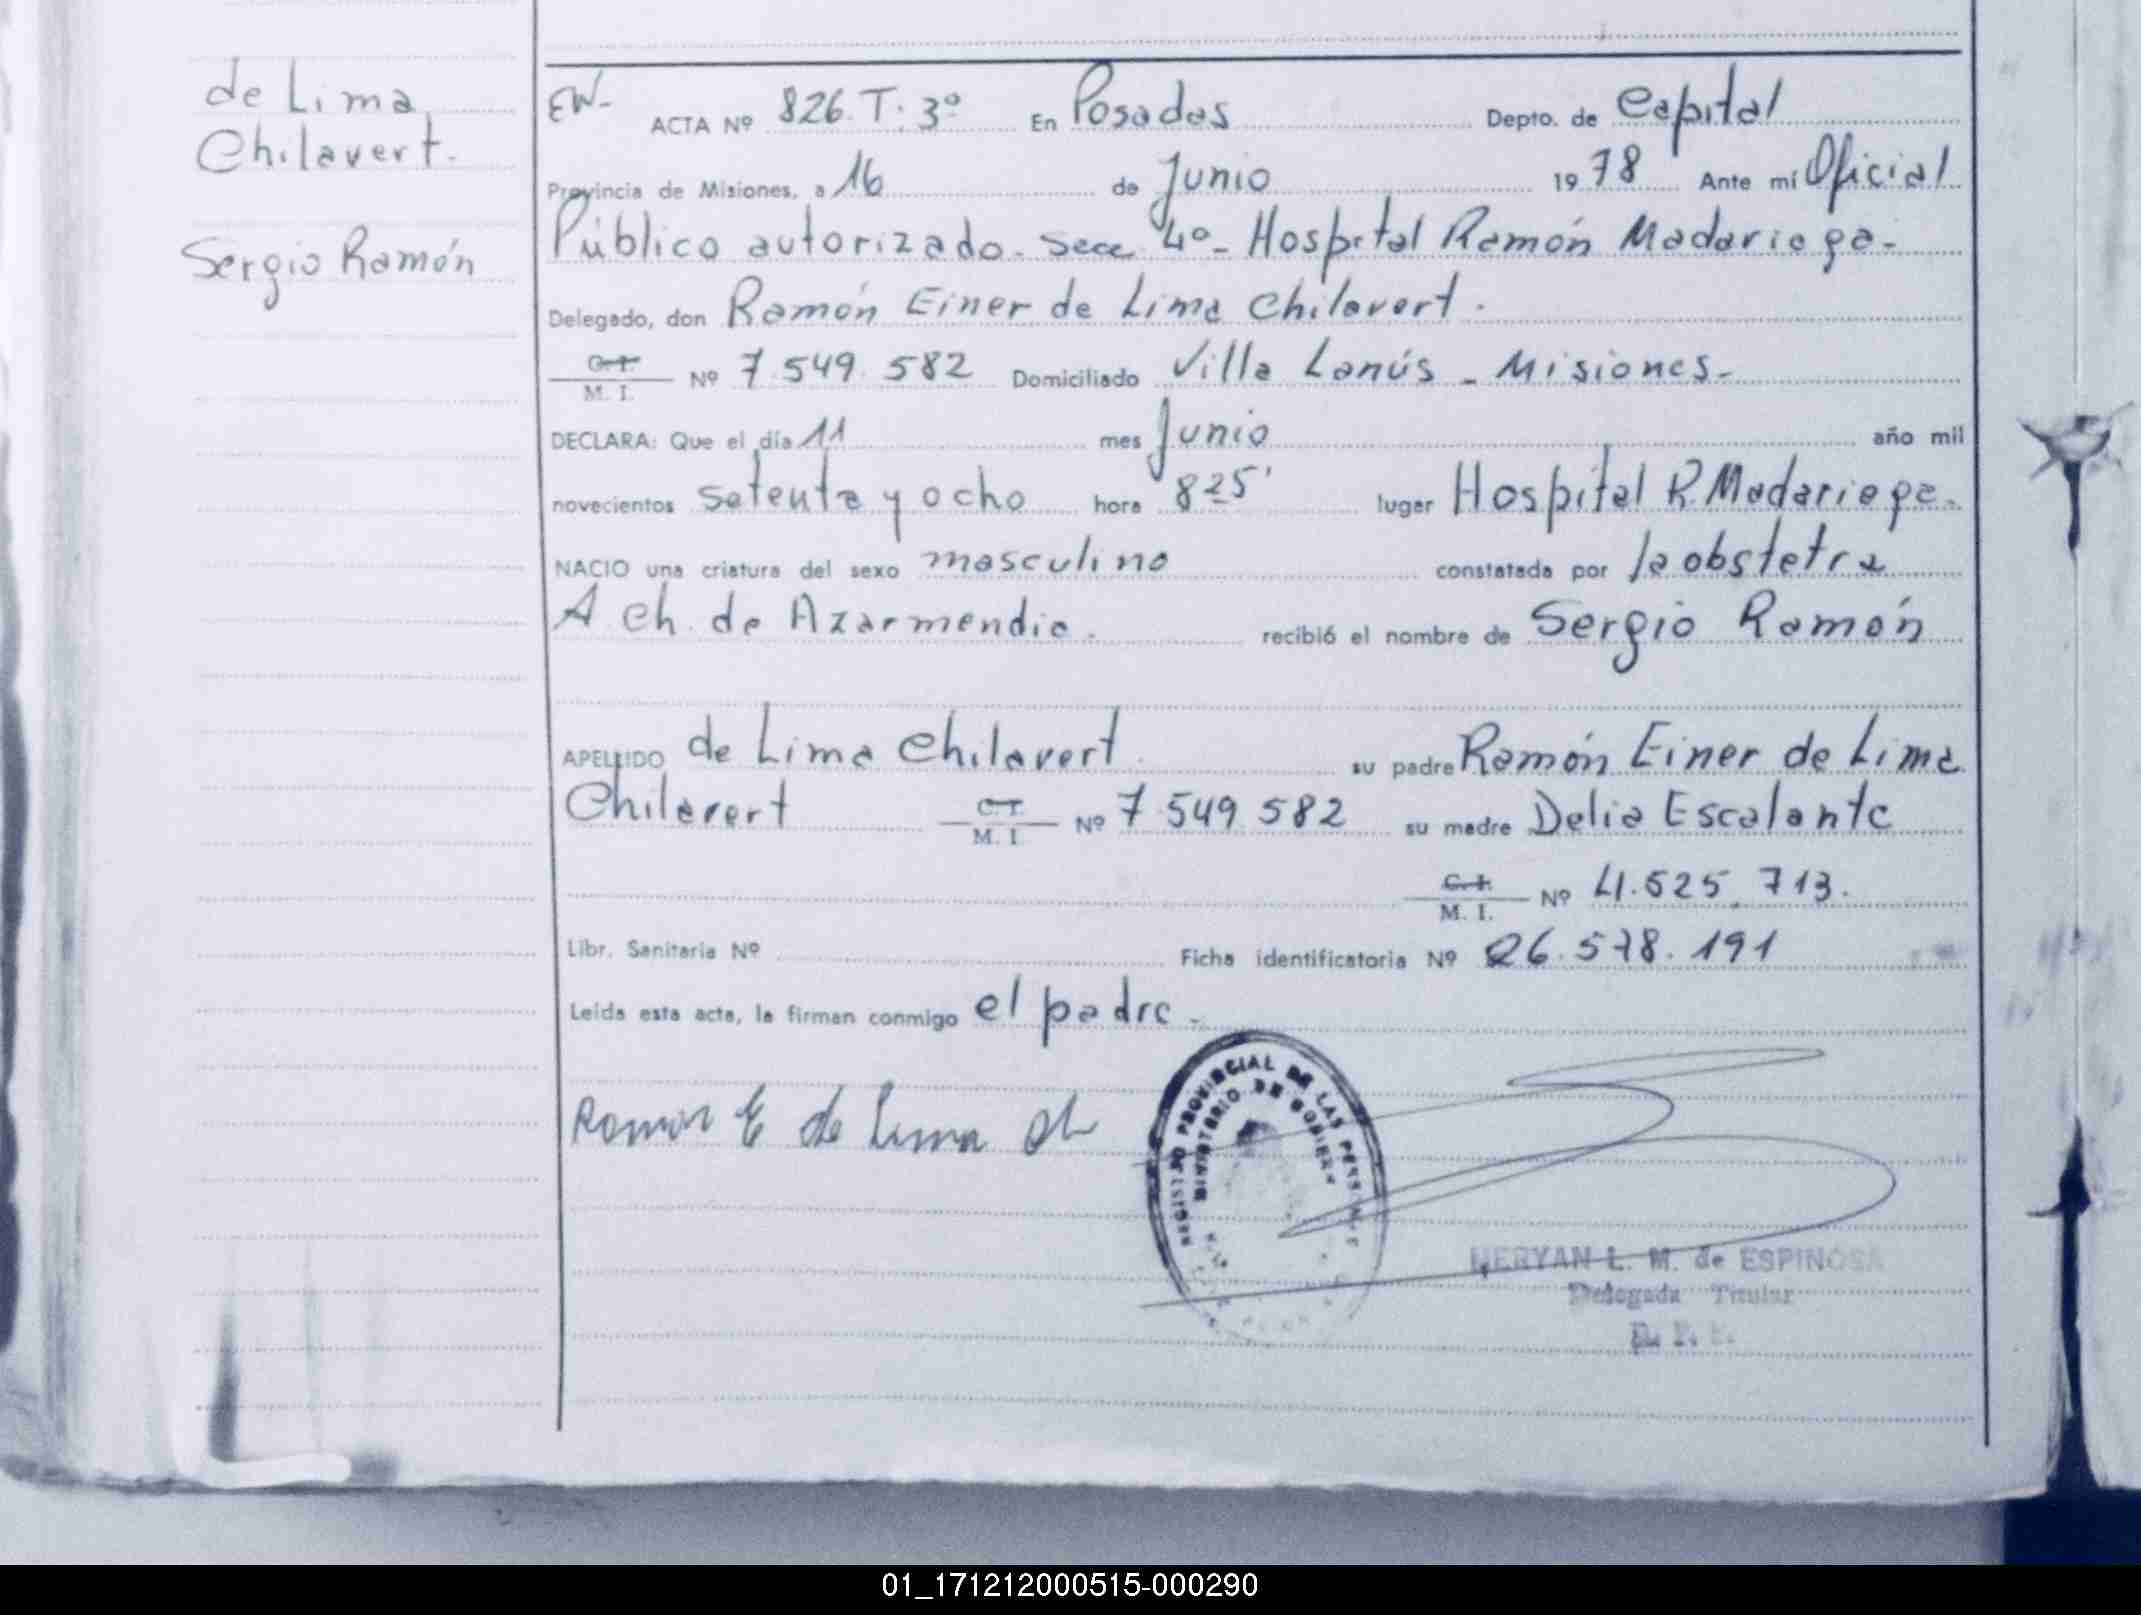 de Lima
Chilavert.
Sergio Ramón
EW- ACTA Nº 826. T. 3º En Posadas Depto. de Capital
Provincia de Misiones, a 16 de Junio 1978 Ante mí Oficial
Público autorizado. Secc 4º- Hospital Ramón Madariaga-
Delegado, don Ramón Einer de Lima Chilavert.
C.I.
M. I. Nº 7.549.582 Domiciliado Villa Lanús - Misiones-
DECLARA: Que el día 11 mes Junio año mil
novecientos setenta y ocho hora 8 25' lugar Hospital R. Madariaga.
NACIO una criatura del sexo masculino constatada por la obstetra
A Ch. de Azarmendia. recibió el nombre de Sergio Ramón
APELLIDO de Lima Chilavert su padre Ramón Einer de Lima
Chilavert C.I.
M. I. Nº 7.549.582 su madre Delia Escalante
C.I.
M. I. Nº 4.525.713.
Libr. Sanitaria Nº Ficha identificatoria Nº 26.578.191
Leída esta acta, la firman conmigo el padre.
Ramón E de Lima Ch
REGISTRO PROVINCIAL DE LAS PERSONAS
MINISTERIO DE GOBIERNO
MERYAN L. M. de ESPINOSA
Delegada Titular
01_171212000515-000290